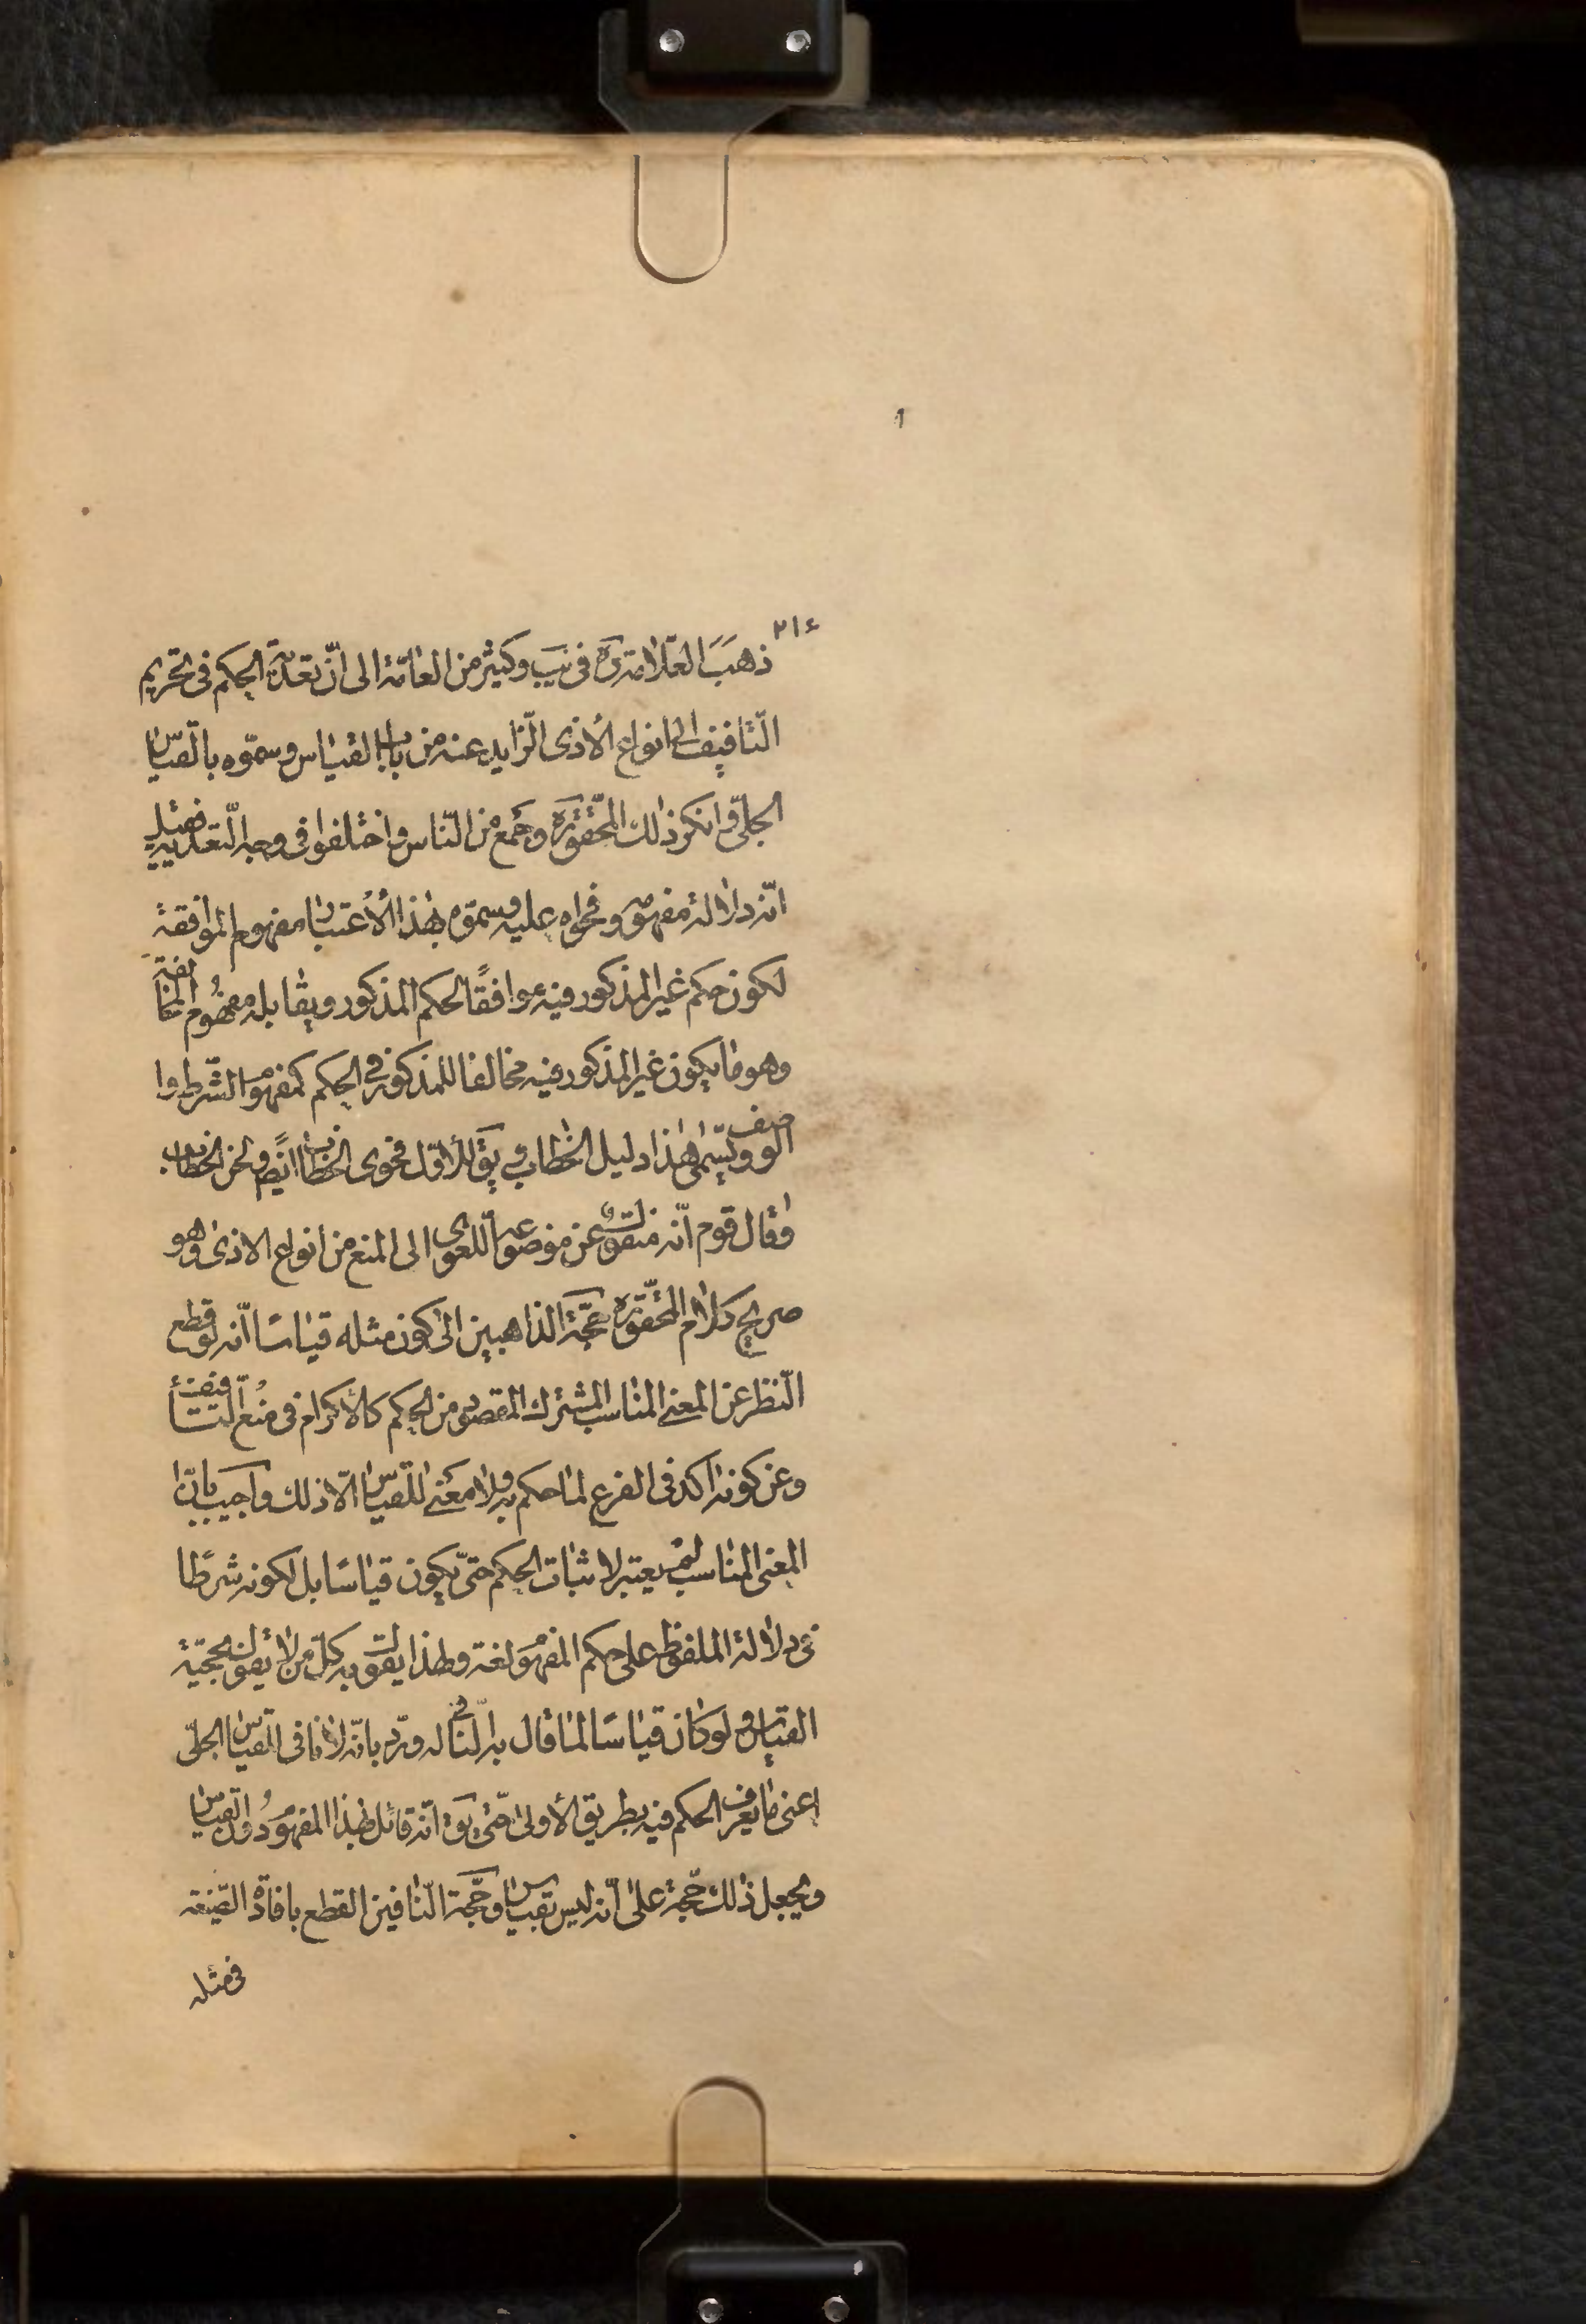 ٢١٤
ذهب العلامة ره فى يب وكثير من العامّة الى انّ تعدية الحكم فى تحريم
التّافيف الى انواع الأذى الزّايد عنه من باب القياس وسمّوه بالقياس
الجلىّ وانكر ذلك المحقّق ره وجمع من النّاس واختلفوا فى وجه التّعدية فقيل
انّه دلالة مفهومه وفحواه عليه وسمّوه بهذا الأعتبار مفهوم الموافقة
لكون حكم غير المذكور فيه موافقًا لحكم المذكور ويقابله مفهوم المخالفة
وهو ما يكون غير المذكور فيه مخالفا للمذكور فى الحكم كمفهوم الشّرط وا
لوصف ويسمّى هذا دليل الخطاب ويقَ للأوّل فحوى الخطاب ايضًا ولحن الخطاب
وقال قوم انّه منقول عن موضوعه اللّغوى الى المنع من انواع الاذى وهو
صريح كلام المحقّق ره حجّة الذاهبين الى كون مثله قياسًا انّه لو قطع
النّظر عن المعنى المناسب المشترك المقصود من الحكم كالأكرام فى منع التّافيف
وعن كونه اكد فى الفرع لما حكم به ولا معنى للقياس الّا ذلك واجيب بانّ
المعنى المناسب لم يعتبر لاثبات الحكم حتّى يكون قياسًا بل لكونه شرطًا
فى دلالة الملفوظ على حكم المفهوم لغة ولهذا يقول به كلّ من لا يقول بحجّية
القياس ولو كان قياسًا لما قال به النّافى له وردّ بانّه لا نافى للقياس الجلىّ
اعنى ما يعرف الحكم فيه بطريق الأولى حتّى يقَ انّه قائل بهذا المفهوم دون القياس
ويجعل ذلك حجّة على انّه ليس بقياس وحجّة النّافين القطع بافادة الصّيغة
فى مثله